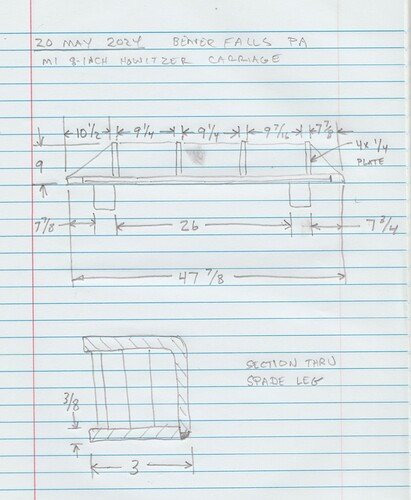 20 MAY 2024 BEAVER FALLS PA
M1 8-INCH HOWITZER CARRIAGE
10 1/2 9 1/4 9 1/4 9 7/16 7 7/8
9
4 x 1/4
PLATE
7 7/8 26 7 3/4
47 7/8
SECTION THRU
SPADE LEG
3/8
3